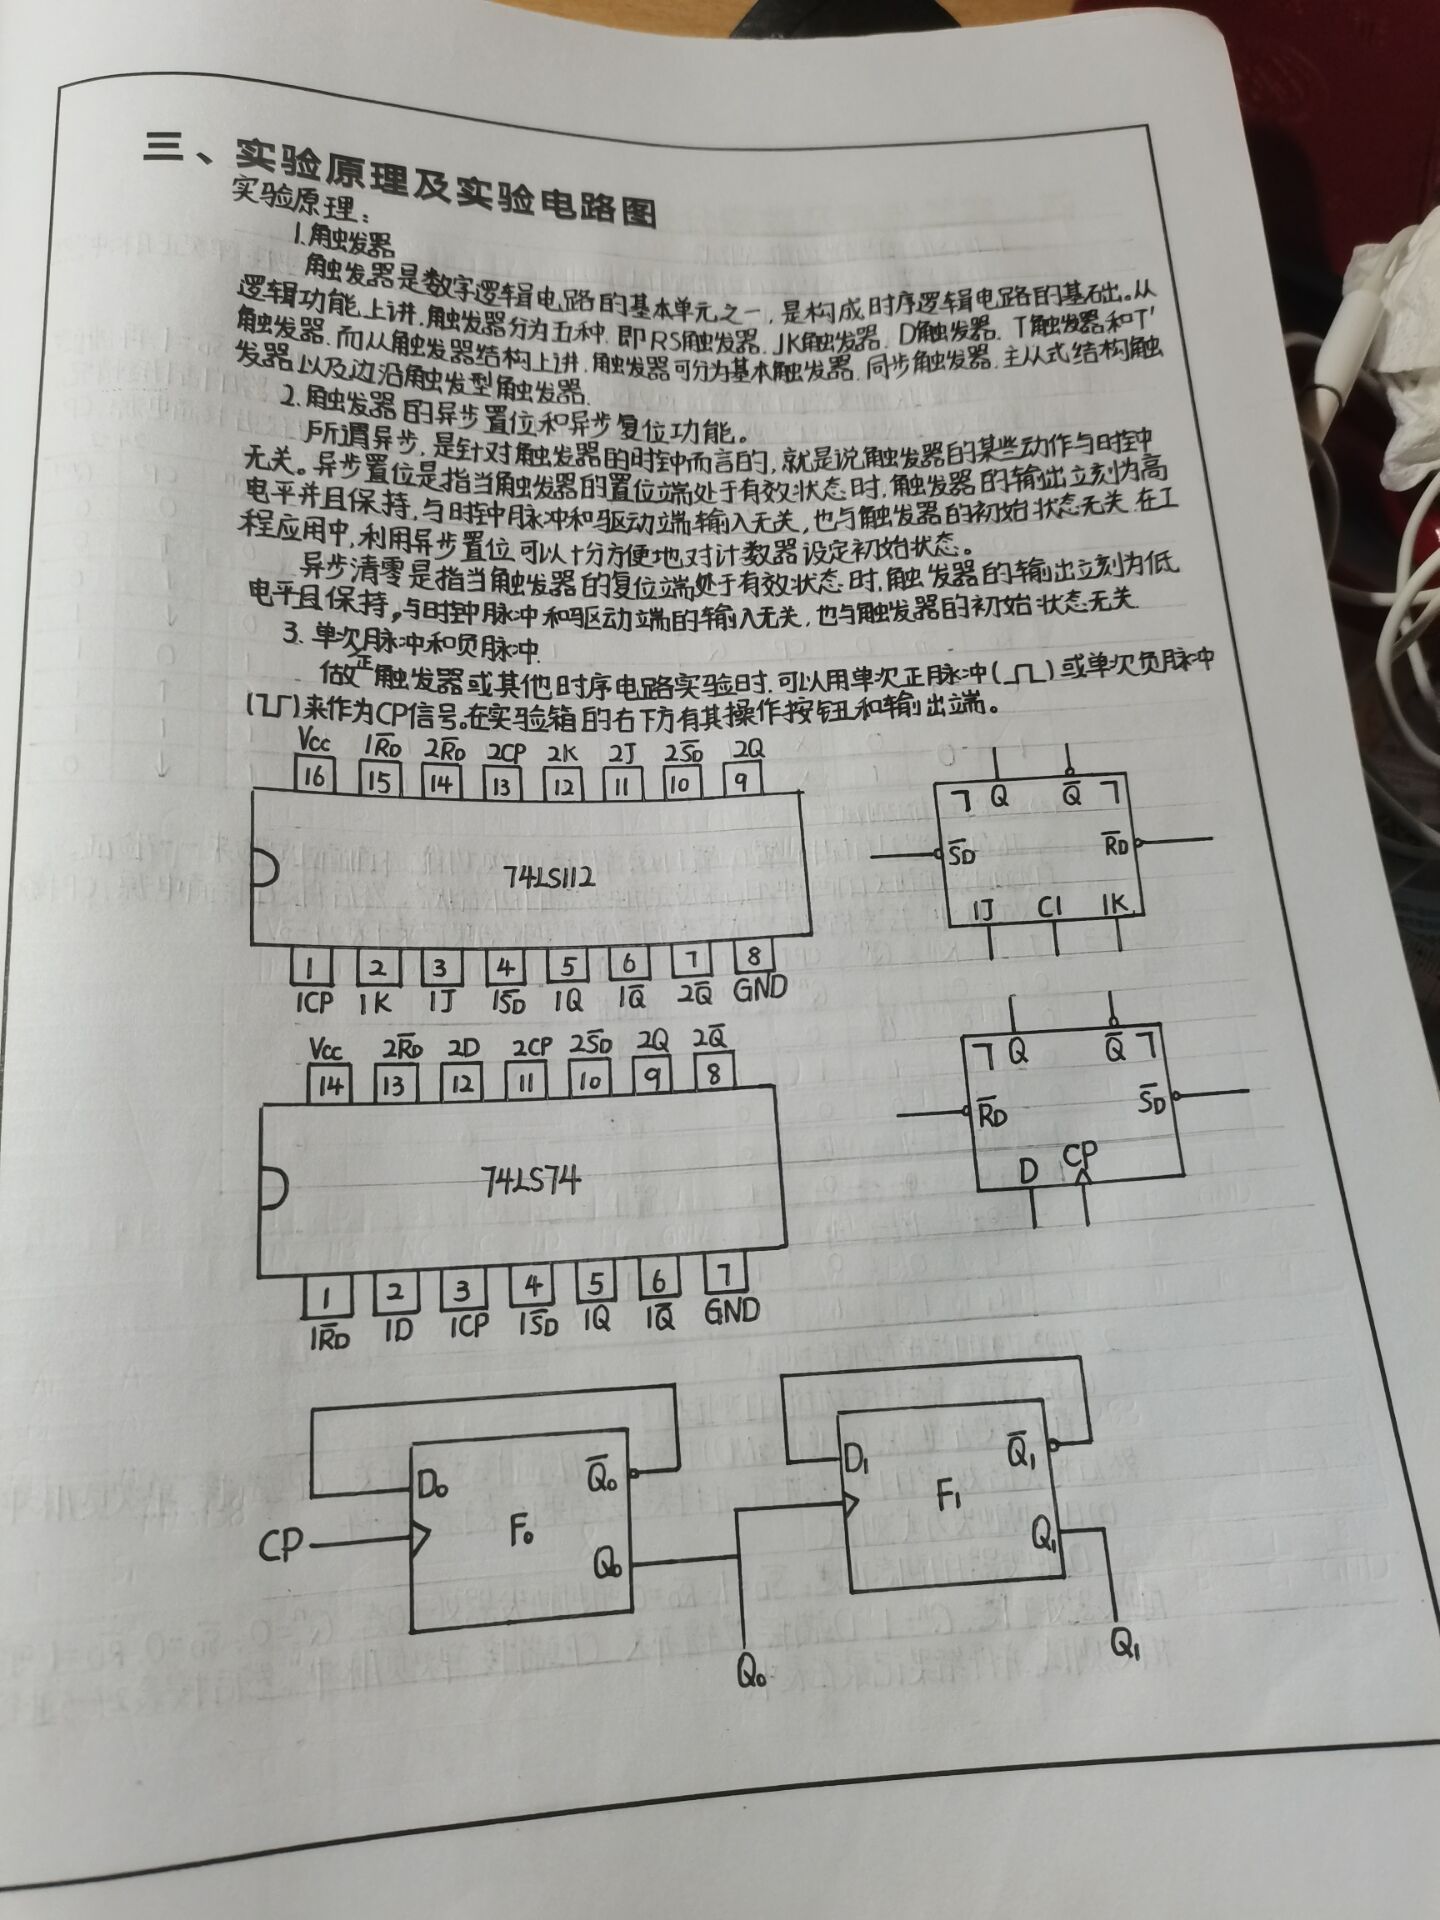 三、实验原理及实验电路图
实验原理:
1.触发器
触发器是数字逻辑电路的基本单元之一,是构成时序逻辑电路的基础出。从
逻辑功能上讲,触发器分为五种,即RS触发器、JK触发器、D触发器、T触发器和T'
触发器,而从触发器结构上讲,触发器可分为基本触发器、同步触发器、主从式结构触
发器以及边沿触发型触发器.
2.触发器的异步置位和异步复位功能。
所谓异步,是针对触发器的时钟而言的,就是说触发器的某些动作与时钟
无关。异步置位是指当触发器的置位端处于有效状态时,触发器的输出立刻为高
电平并且保持,与时钟脉冲和驱动端输入无关,也与触发器的初始状态无关.在工
程应用中,利用异步置位可以十分方便地对计数器设定初始状态。
异步清零是指当触发器的复位端处于有效状态时,触发器的输出立刻为低
电平且保持,与时钟脉冲和驱动端的输入无关,也与触发器的初始状态无关.
3.单次正脉冲和负脉冲.
做触发器或其他时序电路实验时,可以用单次正脉冲(⎍)或单次负脉冲
()来作为CP信号。在实验箱的右下方有其操作按钮和输出端。
Vcc 1R̅D 2R̅D 2CP 2K 2J 2S̅D 2Q
16 15 14 13 12 11 10 9
74LS112
1 2 3 4 5 6 7 8
1CP 1K 1J 1S̅D 1Q 1Q̅ 2Q̅ GND
┐ Q Q̅ ┐
S̅D R̅D
1J C1 1K
Vcc 2R̅D 2D 2CP 2S̅D 2Q 2Q̅
14 13 12 11 10 9 8
74LS74
1 2 3 4 5 6 7
1R̅D 1D 1CP 1S̅D 1Q 1Q̅ GND
┐ Q Q̅ ┐
R̅D S̅D
D CP
D₀ Q̅₀
CP F₀
Q₀
D₁ Q̅₁
F₁
Q₁
Q₀ Q₁